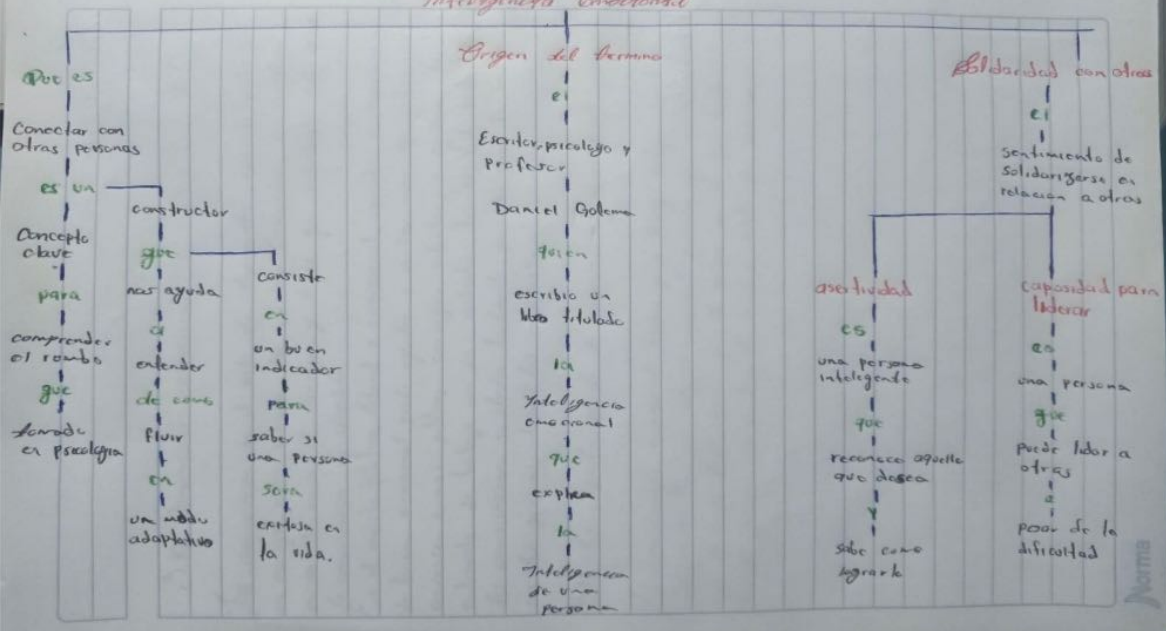 Inteligencia emocional
Que es
Conectar con
otras personas
es un
Concepto
clave
para
comprender
el rombo
que
tomado
en psicologia
constructor
que
nos ayuda
a
entender
de como
fluir
en
un modo
adaptativo
consiste
en
un buen
indicador
para
saber si
una persona
sera
exitosa en
la vida.
Origen del termino
el
Escritor, psicologo y
Profesor
Daniel Goleman
quien
escribio un
libro titulado
la
Inteligencia
emocional
que
explica
la
Inteligencia
de una
persona
Solidaridad con otros
el
sentimiento de
solidarizarse en
relacion a otros
asertividad
es
una persona
inteligente
que
reconoce aquello
que desea
y
sabe como
lograrlo
capasidad para
liderar
es
una persona
que
puede lidar a
otras
a
pesar de la
dificultad
Norma